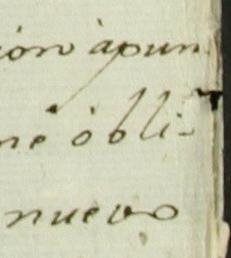 ion àpun
ne òbli-
nuevo